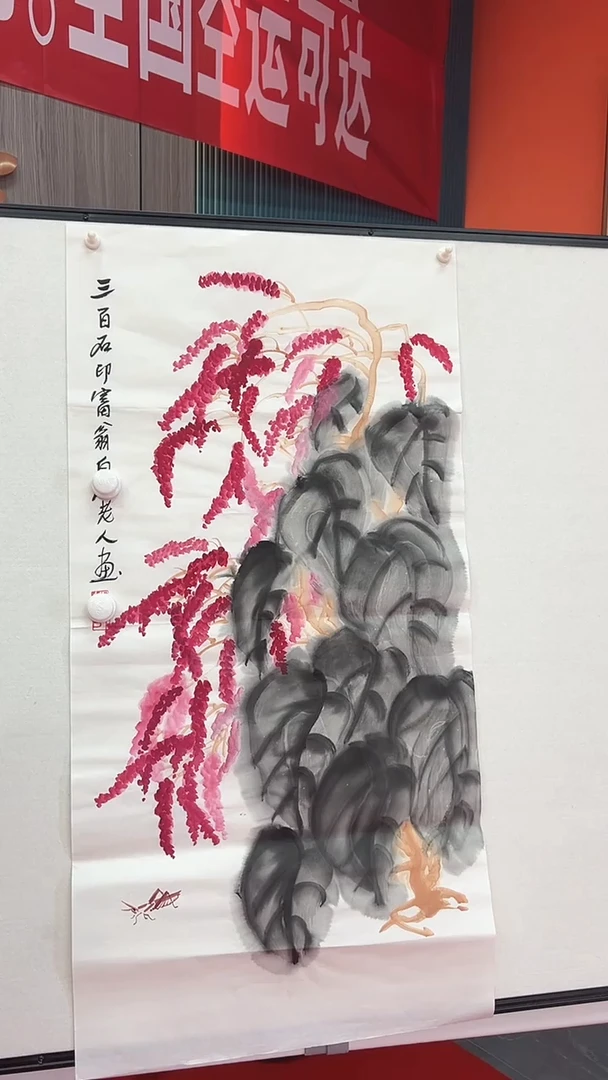 全国空运可达
三百石印富翁白老人画